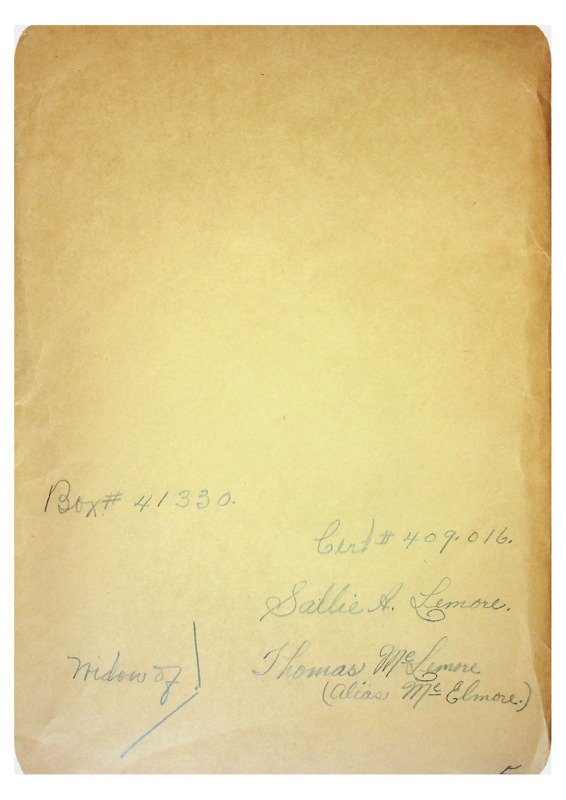 Box# 41330.
Cert # 409.016.
Sallie A. Lemore.
Widow of Thomas McLemore
(alias McElmore.)